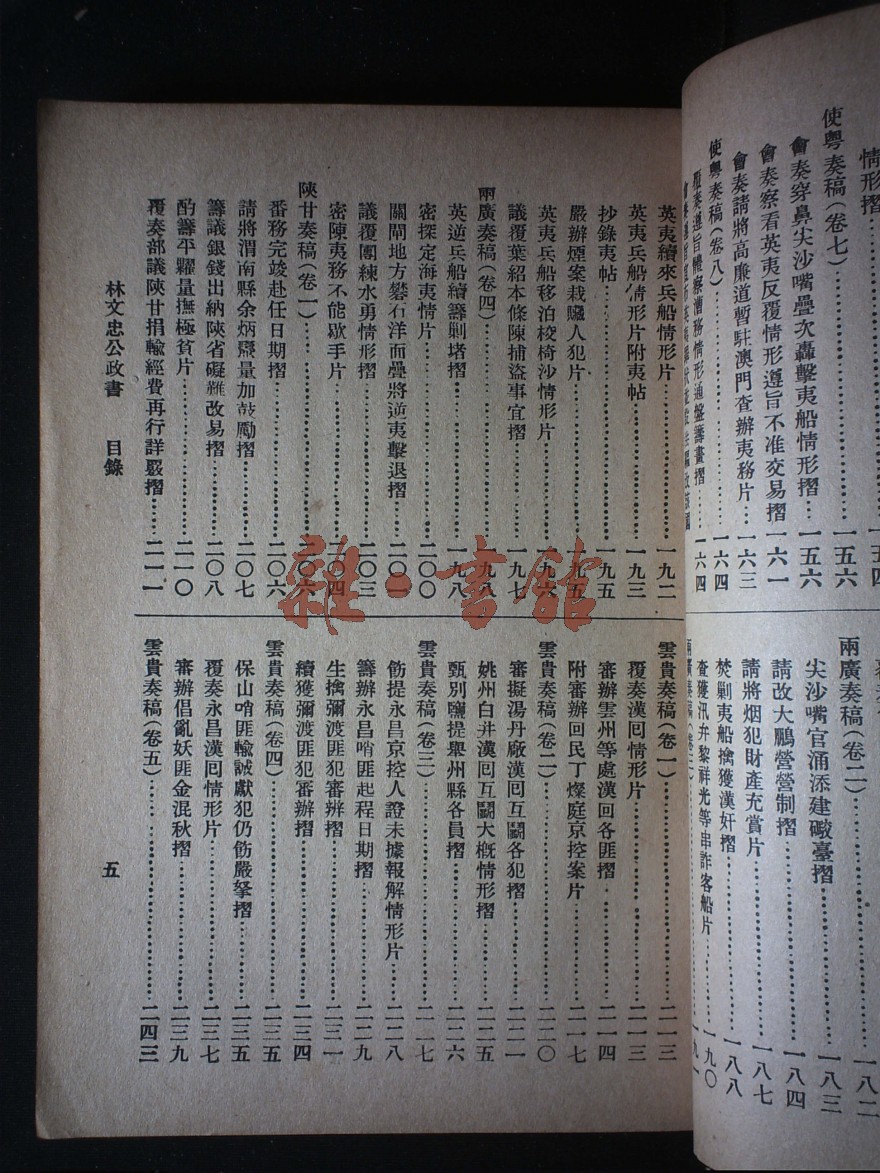 情形摺
一五四
使粵奏稿(卷七)……一五六
會奏穿鼻尖沙嘴疊次轟擊夷船情形摺……一五六
會奏察看英夷反覆情形遵旨不准交易摺……一六一
會奏請將高廉道暫駐澳門查辦夷務片……一六三
使粵奏稿(卷八)……一六四
覆奏遵旨體察漕務情形通盤籌畫摺……一六四
兩廣奏稿(卷二)……一八二
尖沙嘴官涌添建礮臺摺……一八三
請改大鵬營營制摺……一八四
請將烟犯財產充賞片……一八七
焚剿夷船擒獲漢奸摺……一八八
查獲汛弁黎祥光等串詐客船片……一九〇
英夷續來兵船情形片……一九二
英夷兵船情形片附夷帖……一九三
抄錄夷帖……一九五
嚴辦煙案栽贓人犯片……一九五
英夷兵船移泊梭椅沙情形片……一九六
議覆葉紹本條陳捕盜事宜摺……一九七
兩廣奏稿(卷四)……一九八
英逆兵船續籌剿堵摺……一九八
密探定海夷情片……二〇〇
關閘地方攀石洋面疊將逆夷擊退摺……二〇一
議覆團練水勇情形摺……二〇三
密陳夷務不能歇手片……二〇四
陝甘奏稿(卷一)……二〇六
番務完竣赴任日期摺……二〇六
請將渭南縣余炳燾量加鼓勵摺……二〇七
籌議銀錢出納陝省礙難改易摺……二〇八
酌籌平糶量撫極貧片……二一〇
覆奏部議陝甘捐輸經費再行詳覈摺……二一一
雲貴奏稿(卷一)……二一三
覆奏漢回情形片……二一三
審辦雲州等處漢回各匪摺……二一四
附審辦回民丁燦庭京控案片……二一七
雲貴奏稿(卷二)……二二〇
審擬湯丹廠漢回互鬭各犯摺……二二一
姚州白井漢回互鬭大概情形摺……二二五
甄別鹽提舉州縣各員摺……二二六
雲貴奏稿(卷三)……二一七
飭提永昌京控人證未據報解情形片……二二八
籌辦永昌哨匪起程日期摺……二二九
生擒彌渡匪犯審辦摺……二三一
續獲彌渡匪犯審辦摺……二三四
雲貴奏稿(卷四)……二三五
保山哨匪輸誠獻犯仍飭嚴拏摺……二三五
覆奏永昌漢回情形片……二三七
審辦倡亂妖匪金混秋摺……二三九
雲貴奏稿(卷五)……二四三
林文忠公政書 目錄 五
雜·書館